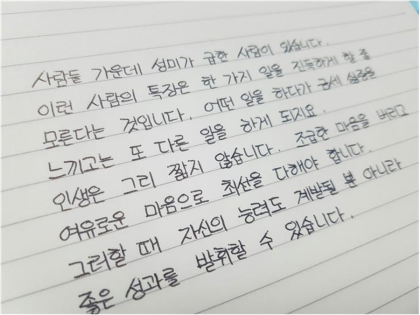 사람들 가운데 성미가 급한 사람이 있습니다.
이런 사람의 특징은 한 가지 일을 진득하게 할 줄
모른다는 것입니다. 어떤 일을 하다가 금세 싫증을
느끼고는 또 다른 일을 하게 되지요.
인생은 그리 짧지 않습니다. 조급한 마음을 버리고
여유로운 마음으로 최선을 다해야 합니다.
그러할 때 자신의 능력도 계발될 뿐 아니라
좋은 성과를 발휘할 수 있습니다.